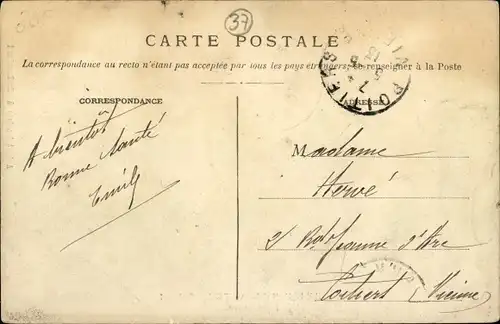 37
CARTE POSTALE
La correspondance au recto n'étant pas acceptée par tous les pays étrangers, se renseigner à la Poste
POITIERS
CORRESPONDANCE
ADRESSE
A bientôt
Bonne Santé
Emile
Madame
Hervé
2 Bd Jeanne d'Arc
(Vienne)